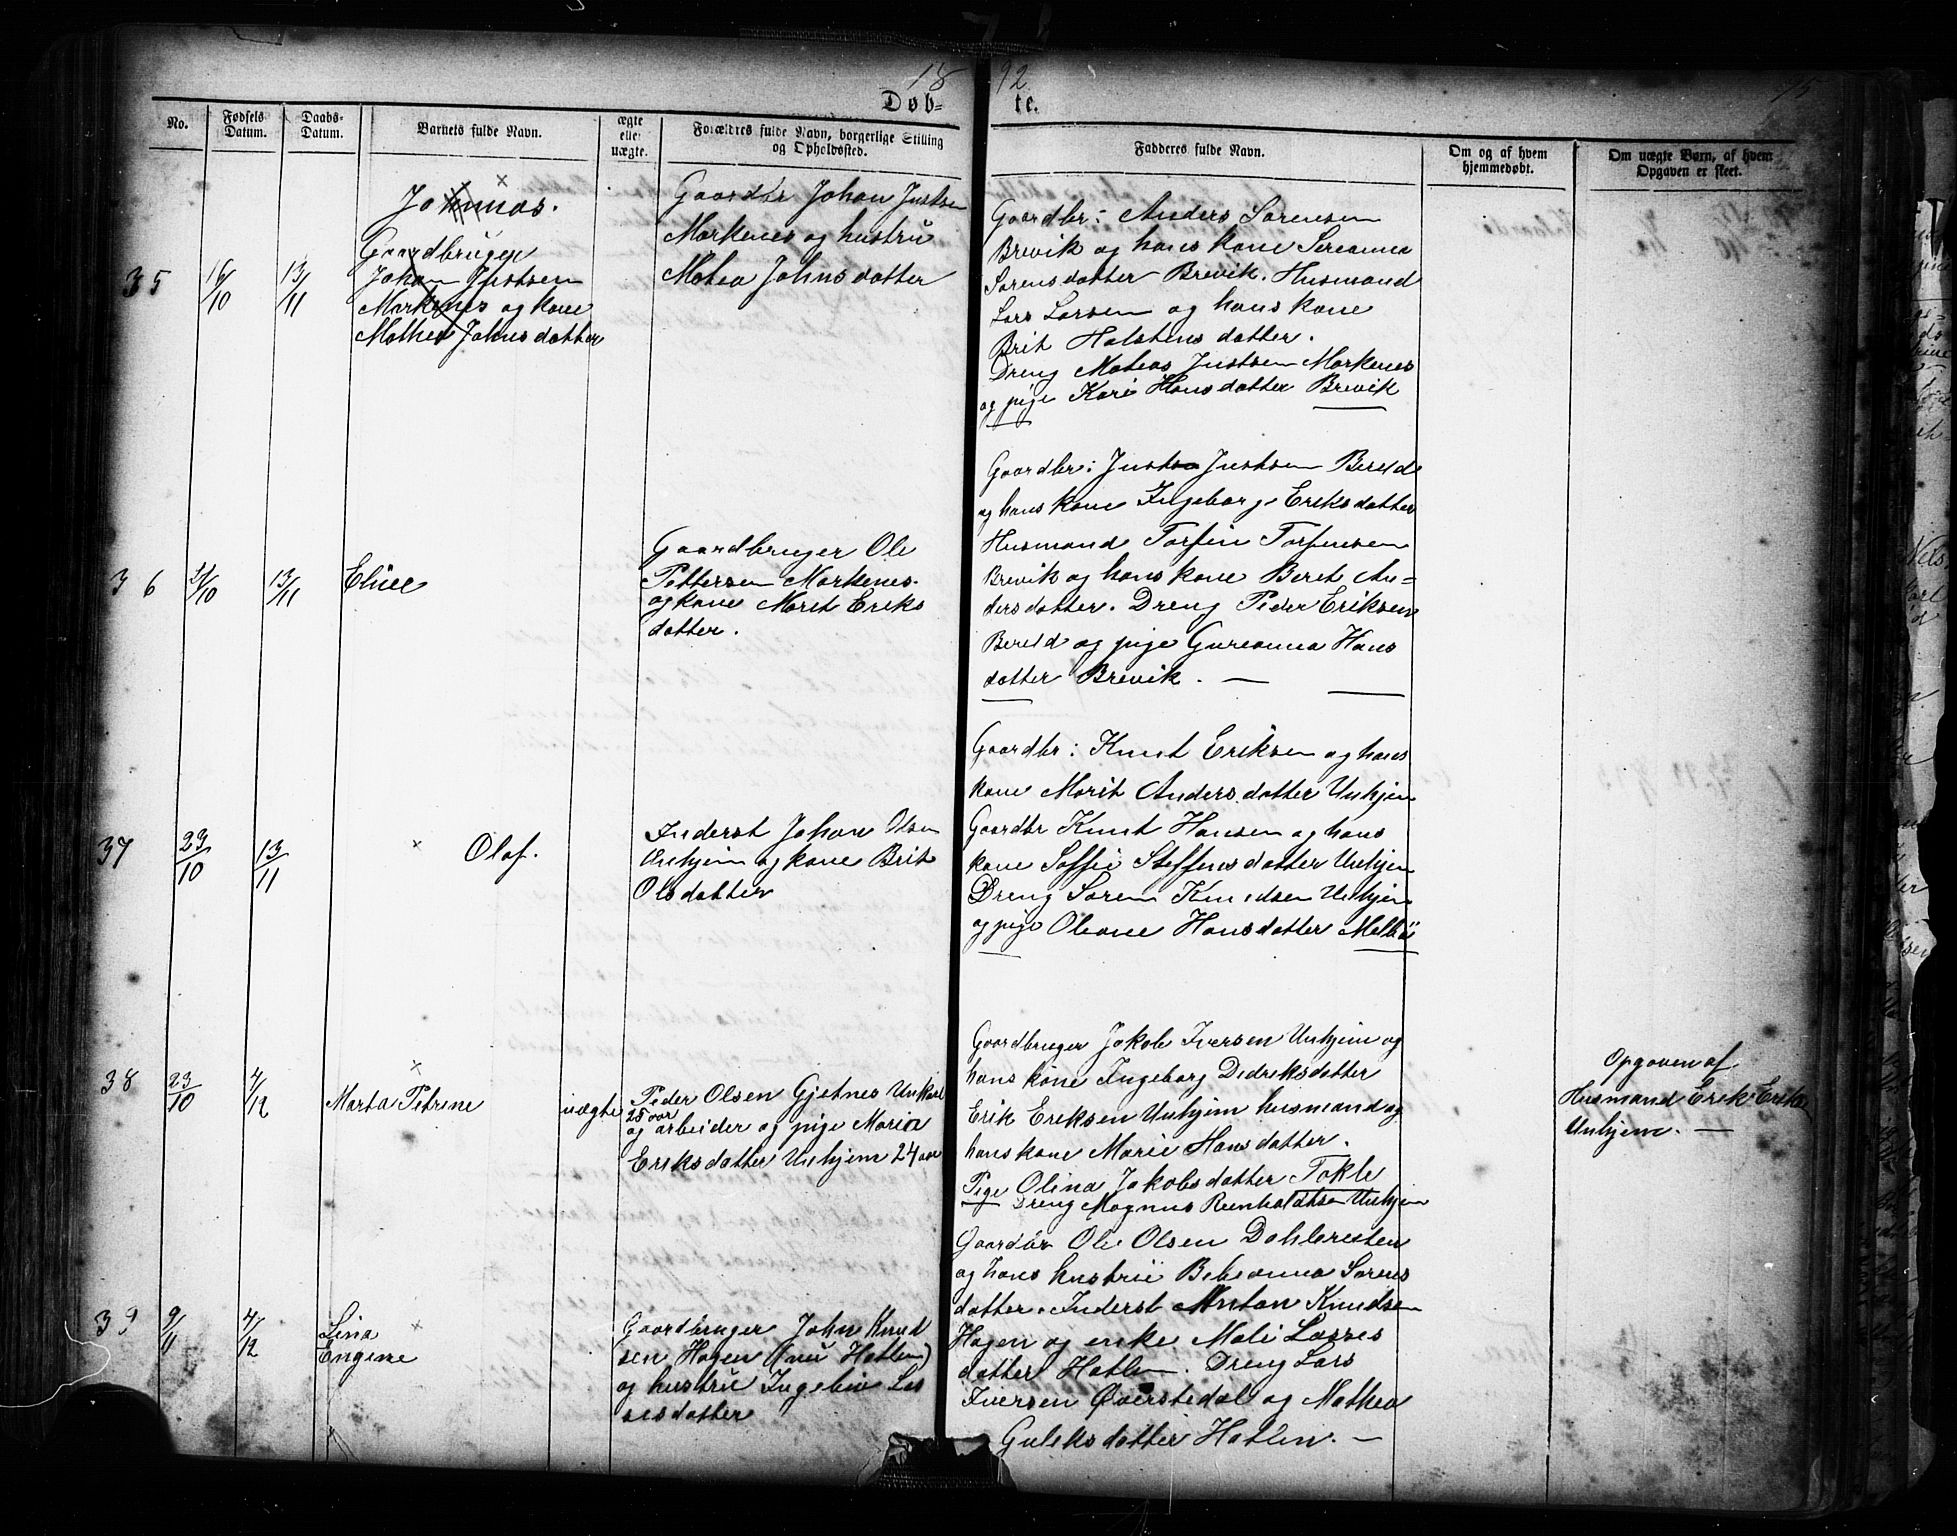 18 92
Døb- te.
75
No.
Fødsels Datum.
Daabs- Datum.
Barnets fulde Navn.
ægte eller uægte.
Forældres fulde Navn, borgerlige Stilling og Opholdssted.
Fadderes fulde Navn.
Om og af hvem hjemmedøbt.
Om uægte Børn, af hvem Opgaven er skeet.
35
16/10
13/11
Johannas.
Gaardbruger
Johan Justsen
Markenes og kone
Mathea Johnsdatter
Gaardbr Johan Justsen
Markenes og hustrü
Matea Johnsdatter
Gaardbr: Anders Sørensen
Brevik og hans kone Sereanna
Sørensdatter Brevik. Husmand
Lars Larsen og hans kone
Brit Halstensdatter.
Dreng Mateas Justsen Markenes
og pige Kari Hansdatter Brevik
36
13/11
Gaardbruger Ole
Pettersen Markenes.
og kone Marit Eriks
datter.
Gaardbr: Just Justsen Bereld
og hans kone Ingeborg Eriksdatter
Husmand Torfin Torfinsen
Brevik og hans kone Beret An-
dersdatter. Dreng Peder Eriksen
Bereld og pige Gureanna Hans
datter Brevik. —
37
23/10
13/11
Olaf.
Inderst Johan Olsen
Unhjem og kone Brit
Olsdatter
Gaardbr: Knut Eriksen og hans
kone Marit Andersdatter Unhjem
Gaardbr Knut Hansen og hans
kone Soffie Steffensdatter Unhjem
Dreng Søren Knudsen Unhjem
og pige Oleane Hansdatter Melbö
38
23/10
4/12
Marta Petrine
uægte
Peder Olsen Gjetnes Unkarl
25 aar
og arbeider og pige Maria
Eriksdatter Unhjem 24 aar
Gaardbruger Jakob Iversen Unhjem og
hans kone Ingeborg Didriksdatter
Erik Eriksen Unhjem husmand og
hans kone Marie Hansdatter.
Pige Olina Jakobsdatter Tokle
Dreng Magnus Reinholdtsen Unhjem
Opgaven af
Husmand Erik Eriks
Unhjem. —
39
9/11
4/12
Lina
Engine
Gaardbruger John Knud
sen Hagen (nu Hatlen)
og hustrü Ingebor Las
sesdatter
Gaardbr Ole Olsen Dahlebresten
og hans hustrü Beheanna Sørens
datter. Inderst Anton Knudsen
Hagen og enke Mali Lasses
datter Hatlen. Dreng Lars
Iversen Øverstedal og Mathea
Guleksdatter Hatlen. —